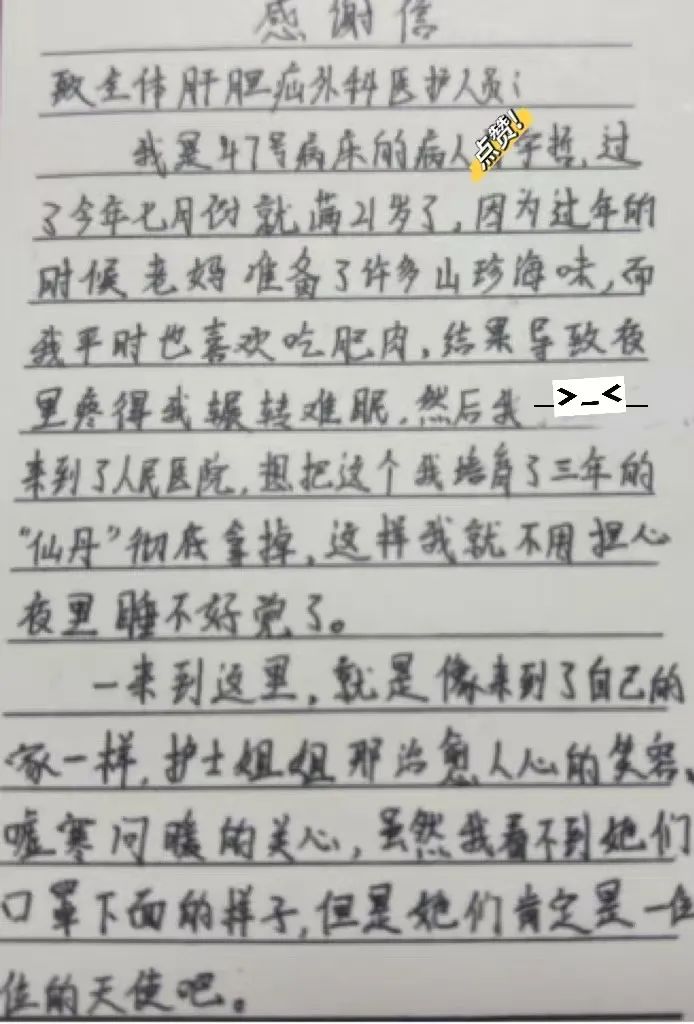 感谢信
致全体肝胆疝外科医护人员：
我是47号病床的病人点赞！宇哲，过
了今年七月份就满21岁了，因为过年的
时候老妈准备了许多山珍海味，而
我平时也喜欢吃肥肉，结果导致夜
里疼得我辗转难眠，然后我 >_<
来到了人民医院，想把这个我培育了三年的
“仙丹”彻底拿掉，这样我就不用担心
夜里睡不好觉了。
一来到这里，就是像来到了自己的
家一样，护士姐姐那治愈人心的笑容、
嘘寒问暖的关心，虽然我看不到她们
口罩下面的样子，但是她们肯定是一位
位的天使吧。